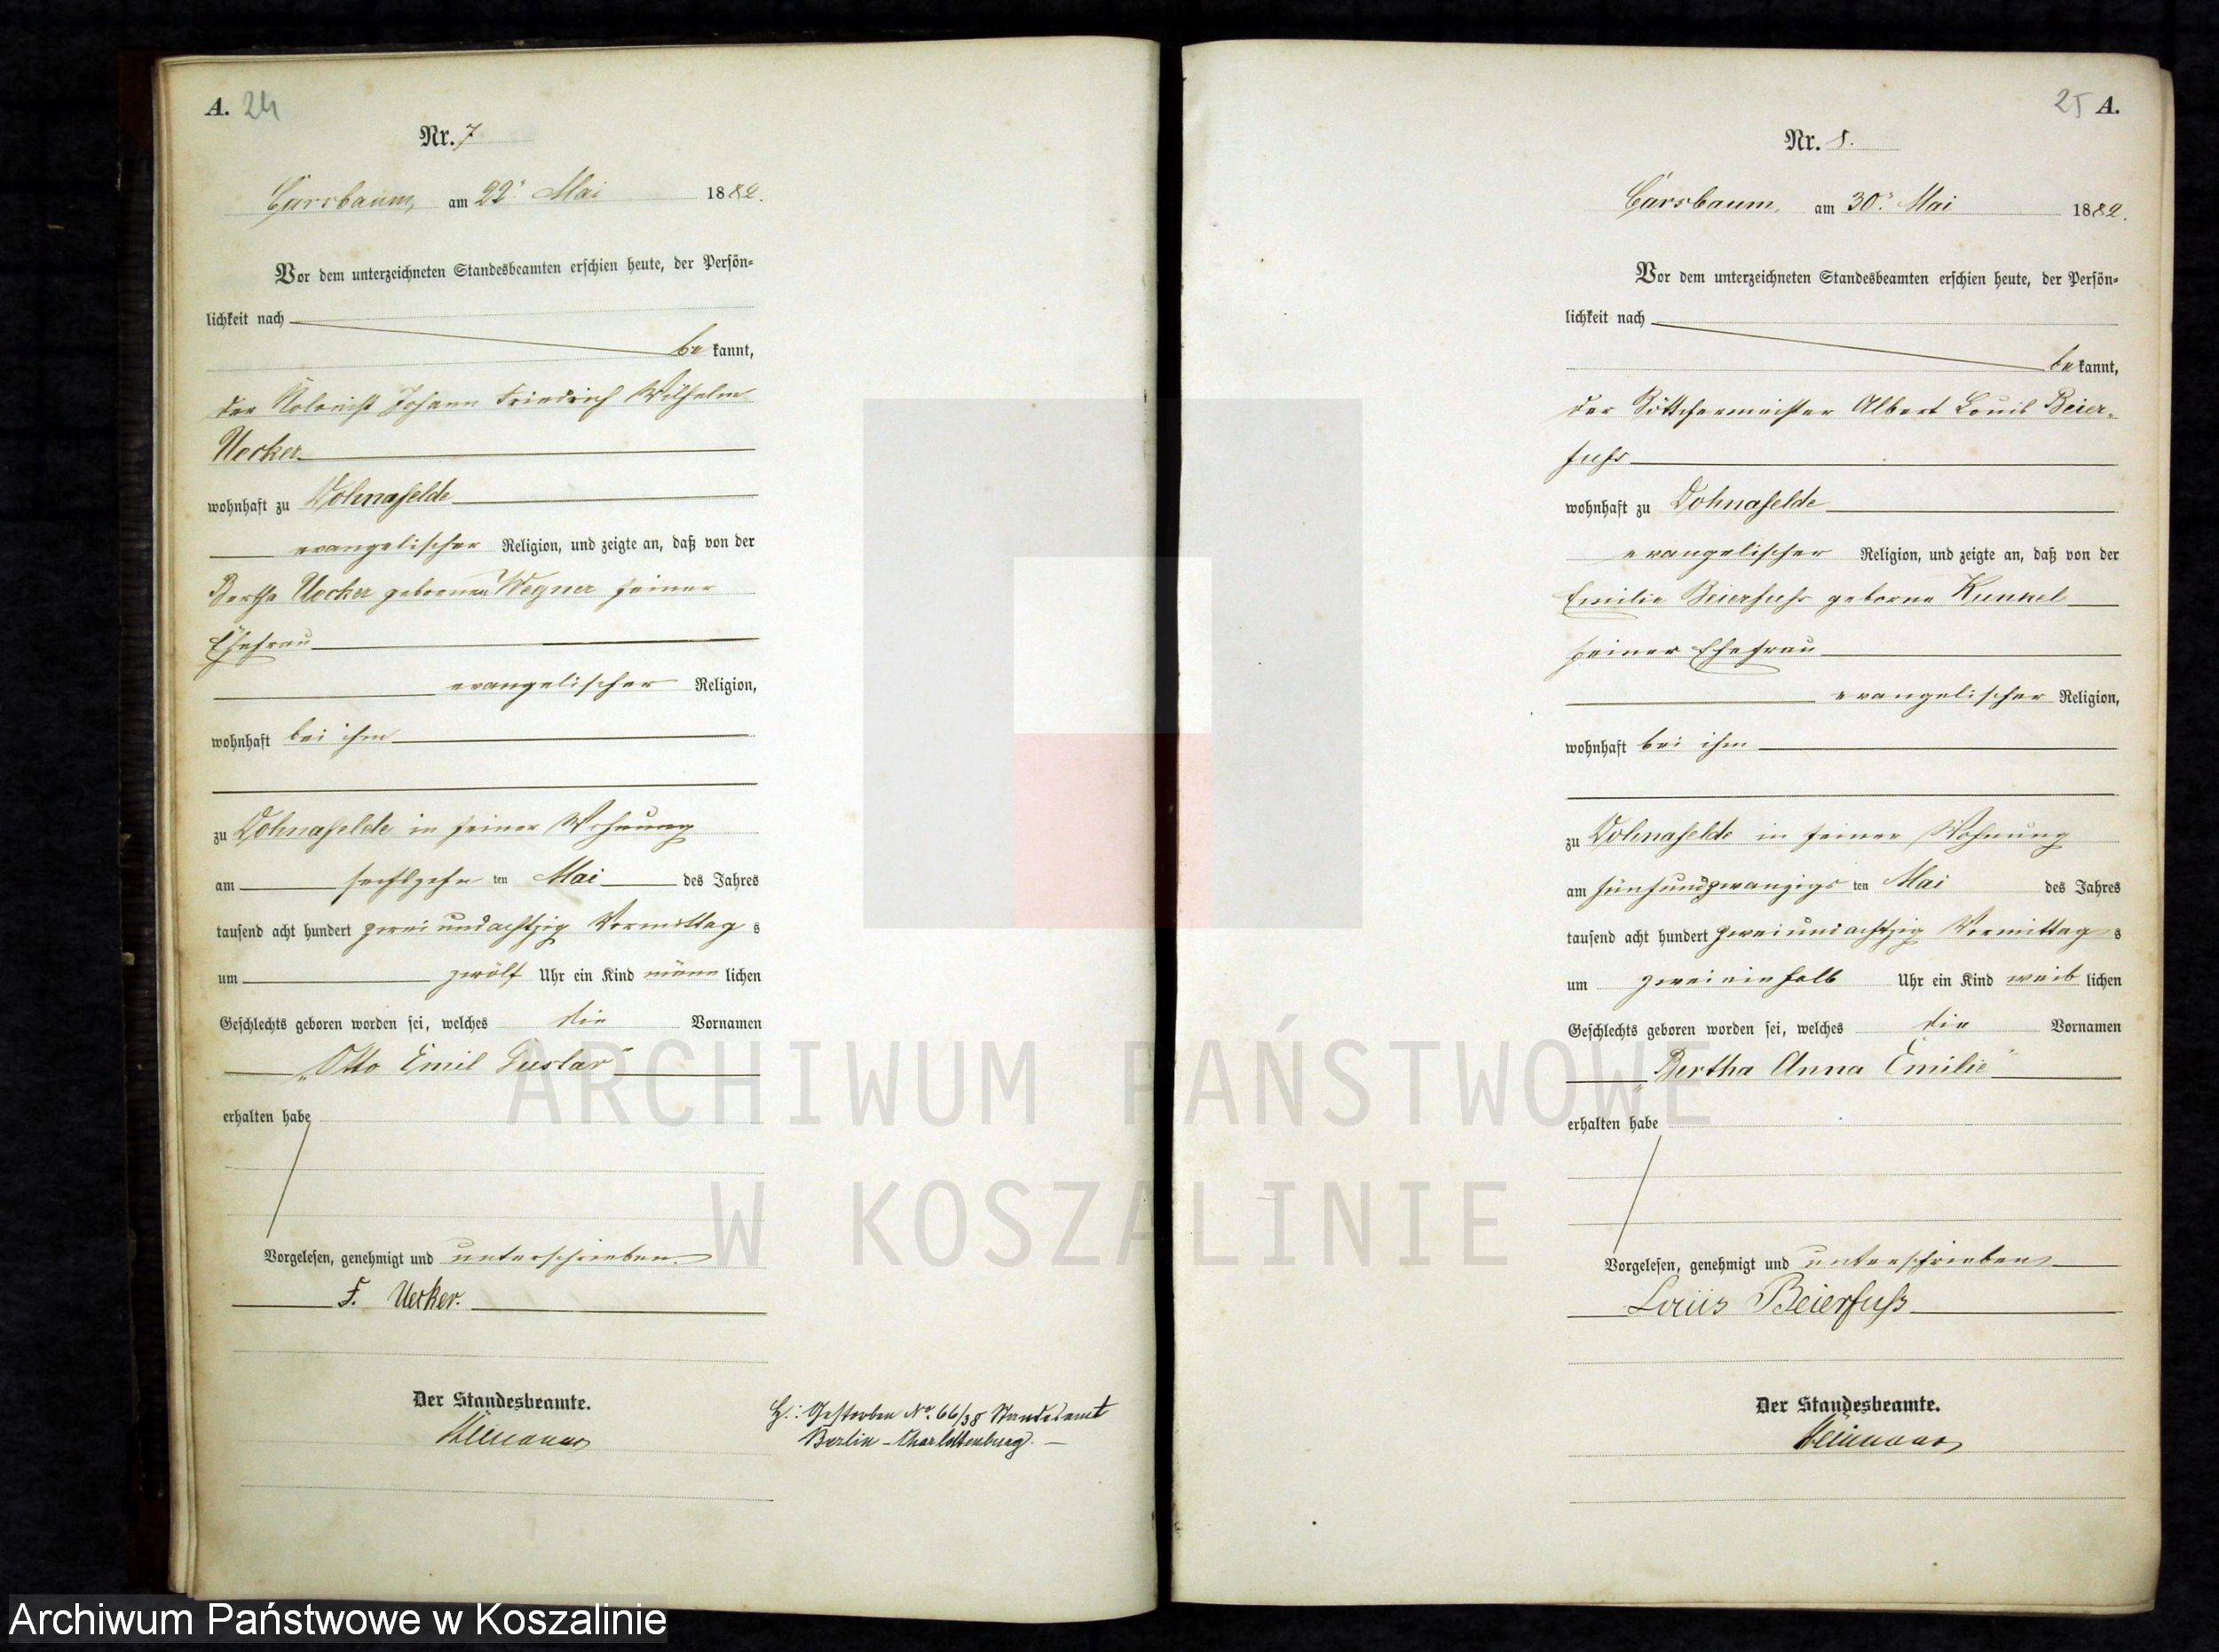 A. 24
Nr. 7
Carsbaum, am 22. Mai 1882.
Vor dem unterzeichneten Standesbeamten erschien heute, der Persön-
lichkeit nach
be kannt,
der Kolonist Johann Friedrich Wilhelm
Uecker
wohnhaft zu Dohnafelde
evangelischer Religion, und zeigte an, daß von der
Bertha Uecker geborenen Wegner seiner
Ehefrau
evangelischer Religion,
wohnhaft bei ihm
zu Dohnafelde in seiner Wohnung
am sechszehn ten Mai des Jahres
tausend acht hundert zwei und achtzig Vormittag s
um zwölf Uhr ein Kind männ lichen
Geschlechts geboren worden sei, welches die Vornamen
„Otto Emil Gustav“
erhalten habe
Vorgelesen, genehmigt und unterschrieben
F. Uecker.
Der Standesbeamte.
H.: Gestorben No. 66/38 Standesamt
Berlin-Charlottenburg. —
25 A.
Nr. 8.
Carsbaum, am 30. Mai 1882.
Vor dem unterzeichneten Standesbeamten erschien heute, der Persön-
lichkeit nach
be kannt,
der Böttchermeister Albert Louis Beier-
fuß
wohnhaft zu Dohnafelde
evangelischer Religion, und zeigte an, daß von der
Emilie Beierfuß geborne Kunkel
seiner Ehefrau
evangelischer Religion,
wohnhaft bei ihm
zu Dohnafelde in seiner Wohnung
am fünfundzwanzigs ten Mai des Jahres
tausend acht hundert zweiundachtzig Vormittag s
um zweieinhalb Uhr ein Kind weib lichen
Geschlechts geboren worden sei, welches die Vornamen
„Bertha Anna Emilie“
erhalten habe
Vorgelesen, genehmigt und unterschrieben
Louis Beierfuß
Der Standesbeamte.
ARCHIWUM PAŃSTWOWE
W KOSZALINIE
Archiwum Państwowe w Koszalinie